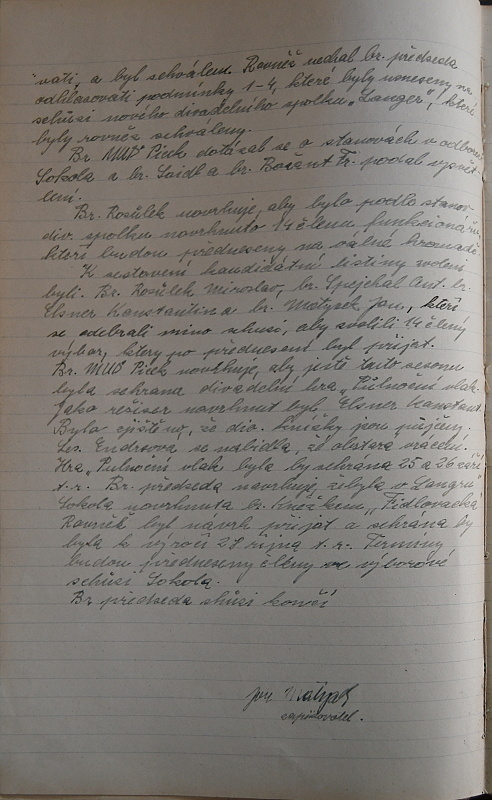 "vati, a byl schválen. Rovněž nechal br. předseda
odhlasovati podmínky 1-4, které byly usneseny na
schůzi nového divadelního spolku „Langer", které
byly rovněž schváleny.
Br. MUDr Pick dotázal se o stanovách v odboru
Sokola a br. Saidl a br. Rožant Fr. podal vysvět-
lení.
Br. Kosůlek navrhuje, aby bylo podle stanov
div. spolku navrhnuto 14 členů, funkcionářů,
kteří budou předneseny na valné hromadě.
K sestavení kandidátní listiny zvoleni
byli: Br. Kosůlek Miroslav, br. Špejchal Ant. br.
Elsner Konstantin a br. Matysek Jan, kteří
se odebrali mimo schůsi, aby zvolili 14 členy
výbor, který po přednesení byl přijat.
Br. MUDr Pick navrhuje, aby ještě tuto sesonu
byla sehrána divadelní hra „Půlnoční vlak.
Jako režiser navrhnut byl Elsner Konstant.
Bylo zjištěno, že div. knížky jsou půjčeny.
Ses. Endrsova se nabídla, že obstará vrácení.
Hra „Pulnoční vlak byla by sehrána 25 a 26 září
t.r. Br. předseda navrhuje, aby byla v „Langru"
Sokola navrhnuta br. Knéžkem, „Fidlovačka"
Rovněž byl návrh přijat a sehrána by
byla k výročí 28 října t.r. Terminy
budou předneseny členy ve výborové
schůsi Sokola.
Br předseda shůsi končí
Jan Matysek
zapisovatel.